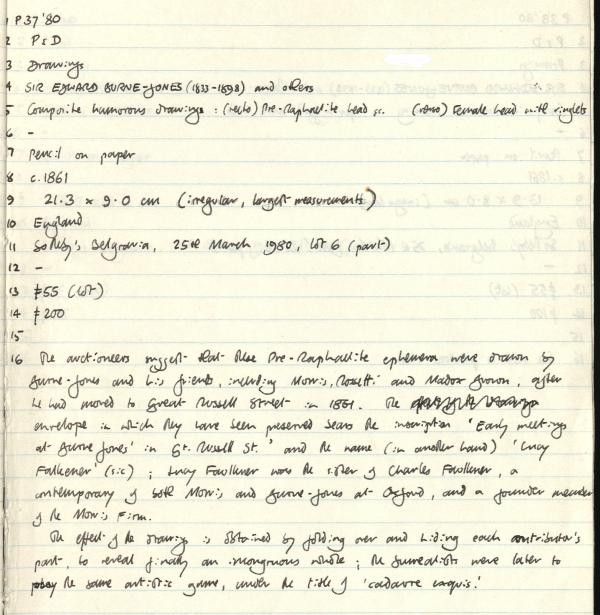 1 P37'80
2 P & D
3 Drawings
4 SIR EDWARD BURNE-JONES (1833-1898) and others
5 Composite humorous drawings : (recto) Pre-Raphaelite head &c. (verso) Female head with ringlets
6 -
7 Pencil on paper
8 c.1861
9 21.3 x 9.0 cm (irregular, largest measurements)
10 England
11 Sotheby's Belgravia, 25th March 1980, lot 6 (part)
12 -
13 £55 (lot)
14 £200
15
16 The auctioneers suggest that these Pre-Raphaelite ephemera were drawn by
Burne-Jones and his friends, including Morris, Rossetti and Madox Brown, after
he had moved to Great Russell Street in 1861. The
envelope in which they have been preserved bears the inscription 'Early meetings
at Burne Jones' in Gt. Russell St.' and the name (in another hand) 'Lucy
Falkener' (sic) ; Lucy Faulkner was the sister of Charles Faulkner, a
contemporary of both Morris and Burne-Jones at Oxford, and a founder member
of the Morris Firm.
The effect of the drawings is obtained by folding over and hiding each contributor's
part, to reveal finally an incongruous whole ; the Surrealists were later to
play the same artistic game, under the title of 'cadavre exquis.'